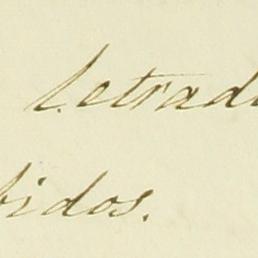 Letrad
bidos.